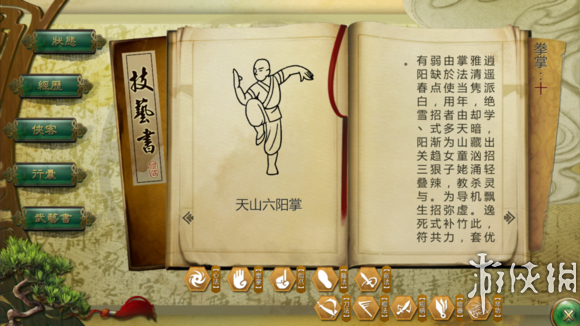 狀態
經歷
俠客
行囊
技藝書
技藝書
天山六阳掌
拳掌：十
逍遥派绝学，出招轻灵飘逸，优
雅清隽，却暗藏汹涌杀机。此套
掌法当年由天山童姥教导虚竹，
由於使用者多为女子，为弥补力
弱缺点，招式渐趋狠辣。招式共
有阳春白雪、阳关三叠与生死符
。
游侠网